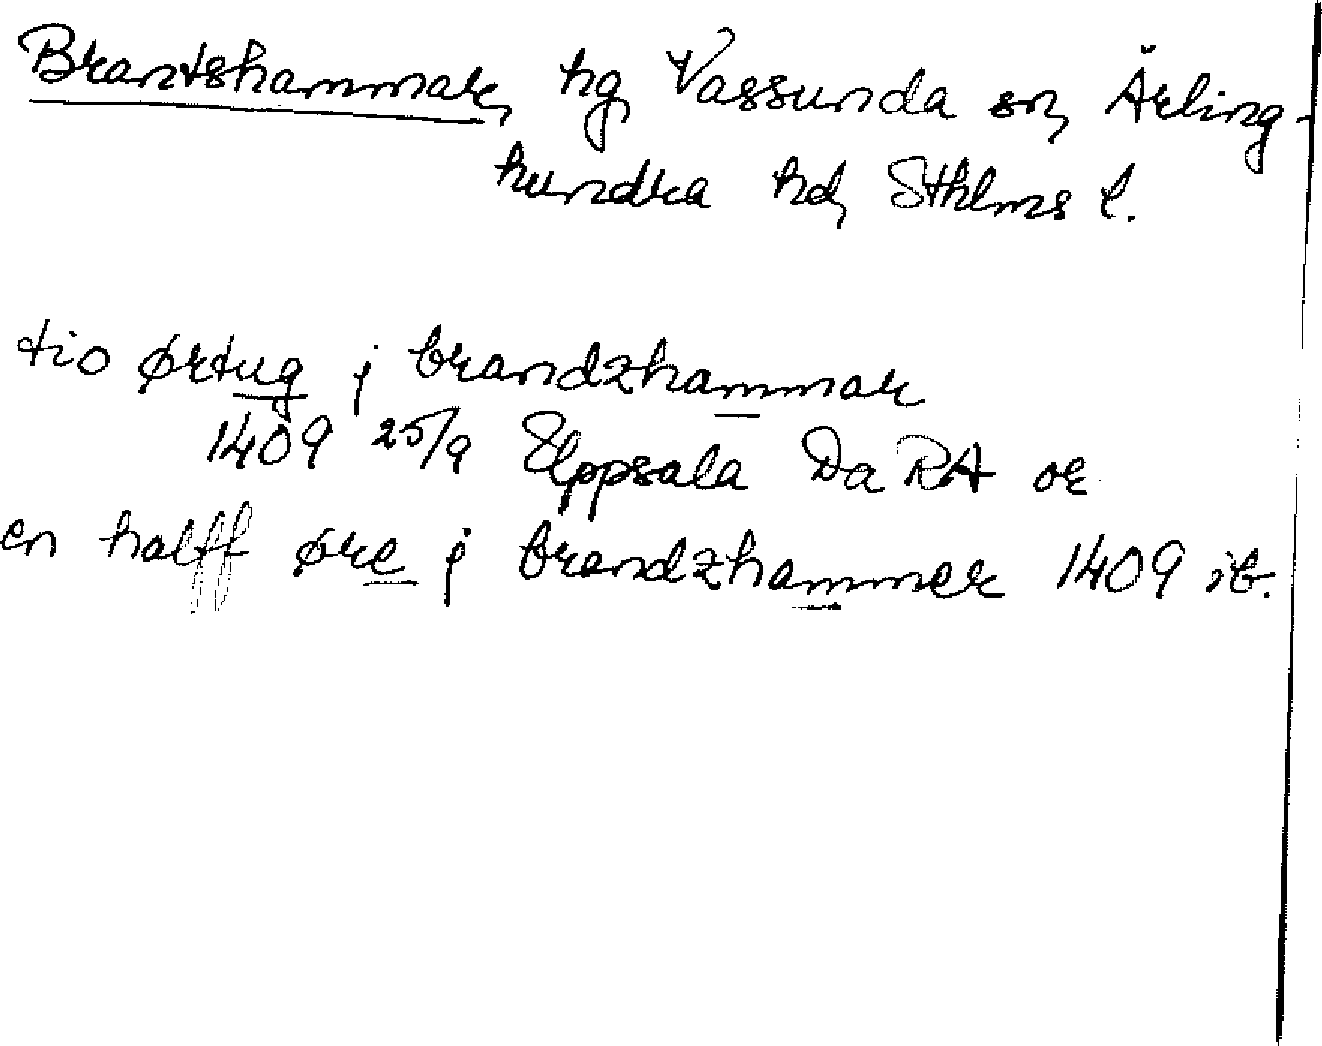 Brantshammar, hg, Vassunda sn, Ärling-
hundra hd, Sthlms l.
tio ørtug j brandzhammar
1409 25/9 Uppsala Da RA or
en halff øre j brandzhammer 1409 ib.